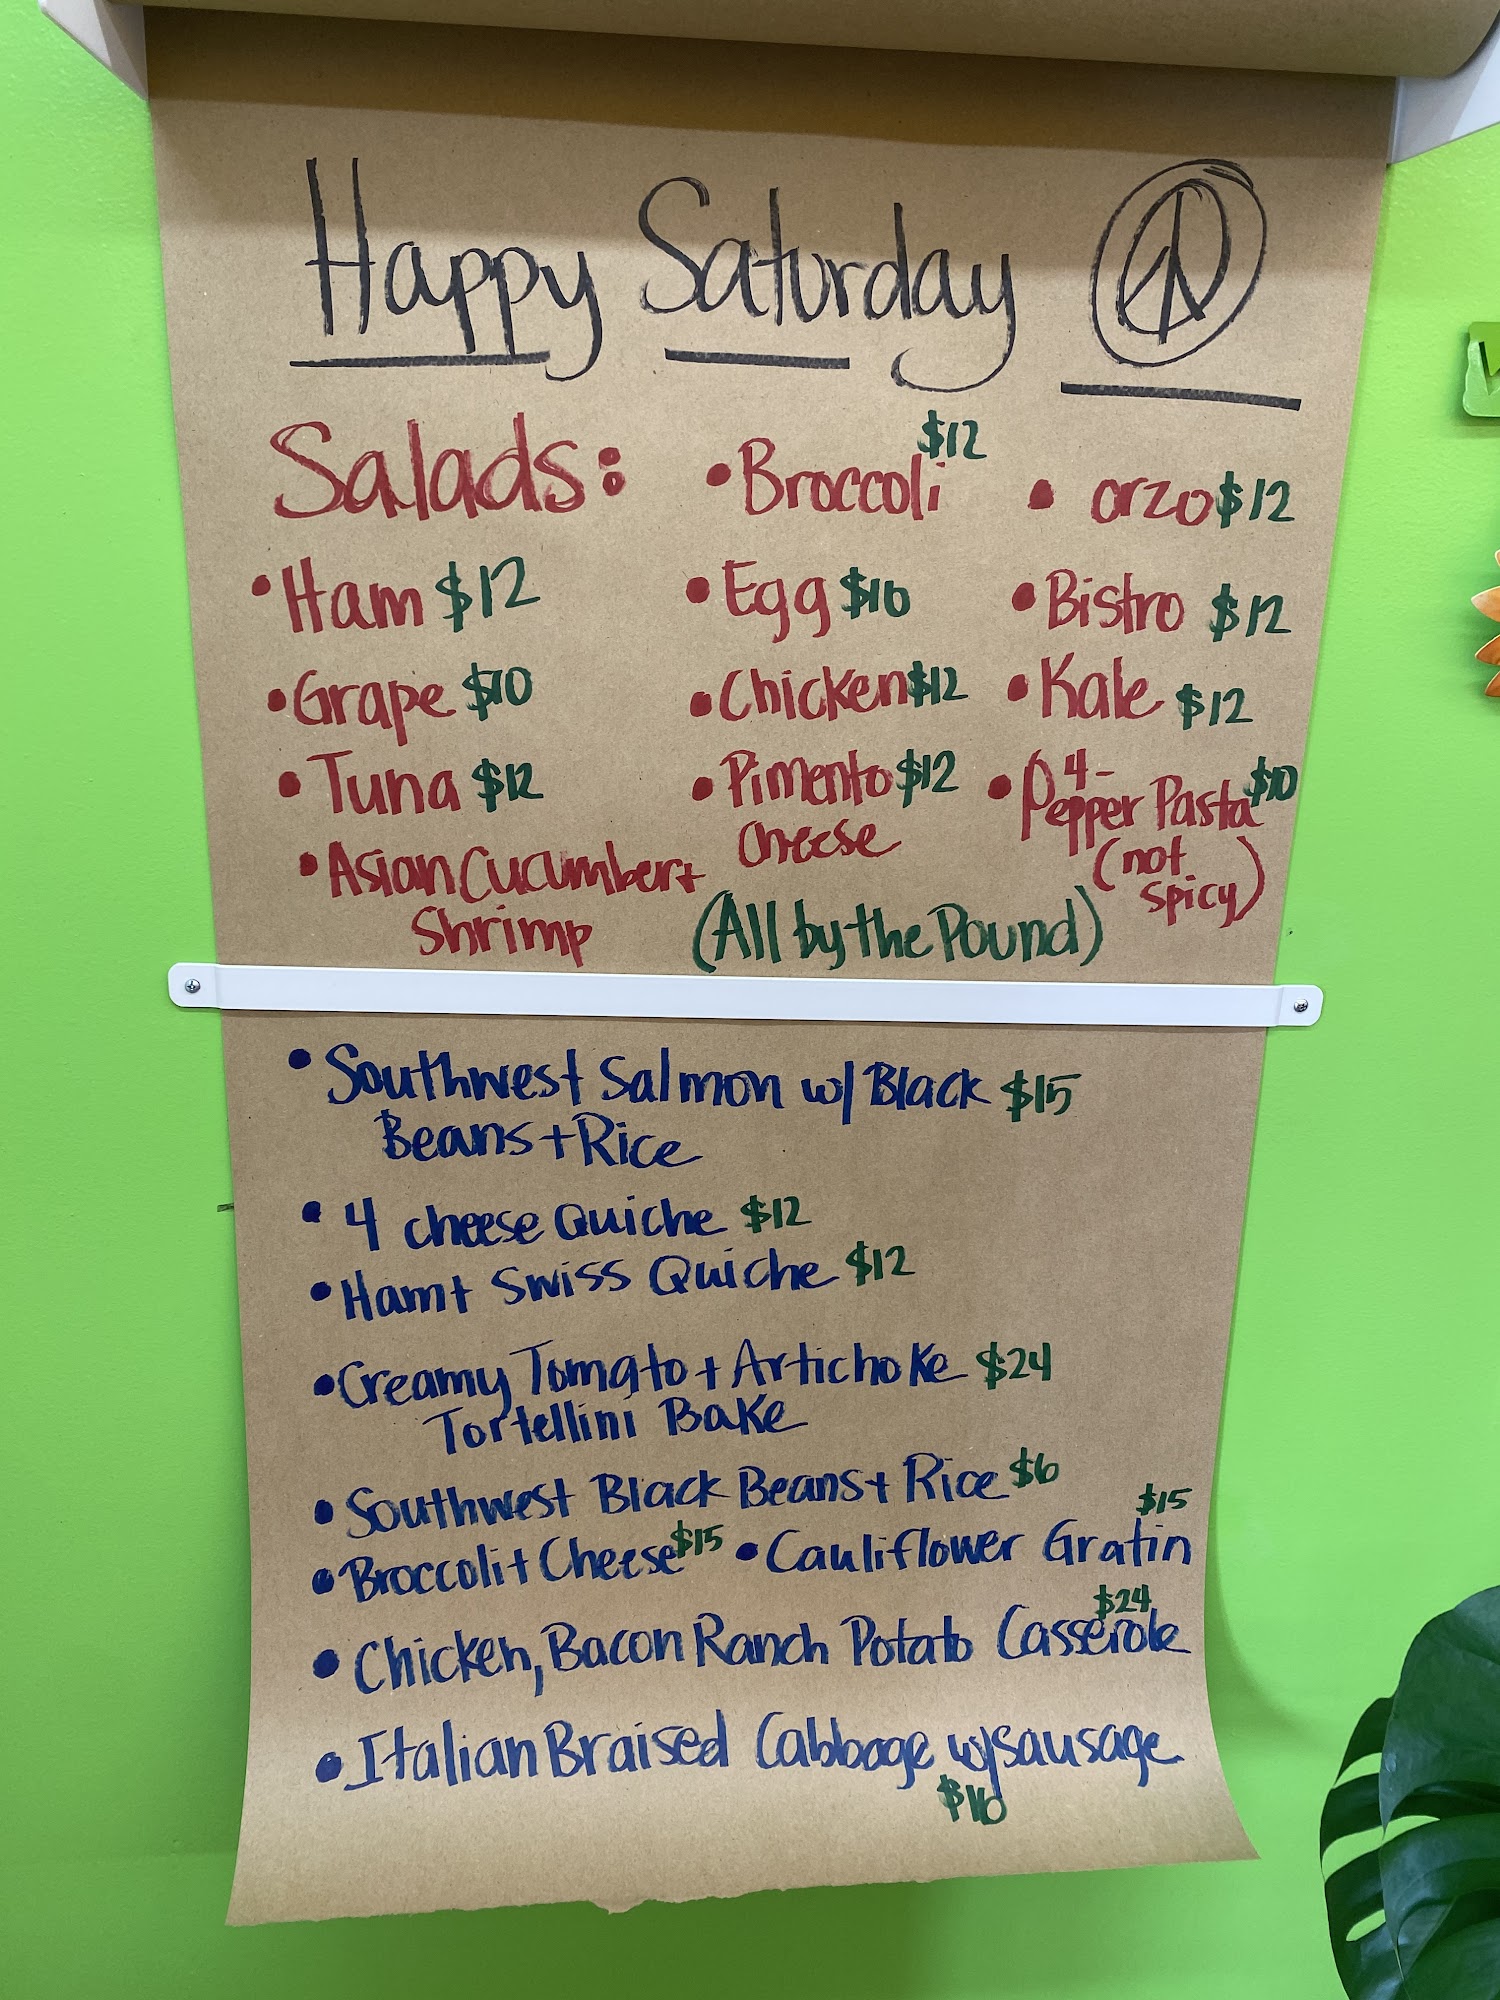 Happy Saturday
Salads:
• Ham $12
• Grape $10
• Tuna $12
• Asian Cucumber +
Shrimp
• Broccoli $12
• Egg $10
• Chicken $12
• Pimento $12
Cheese
• orzo $12
• Bistro $12
• Kale $12
• 4-
Pepper Pasta $10
(not
spicy)
(All by the Pound)
• Southwest Salmon w/ Black $15
Beans + Rice
• 4 cheese Quiche $12
• Ham + Swiss Quiche $12
• Creamy Tomato + Artichoke $24
Tortellini Bake
• Southwest Black Beans + Rice $6
• Broccoli + Cheese $15 • Cauliflower Gratin $15
• Chicken, Bacon Ranch Potato Casserole $24
• Italian Braised Cabbage w/ sausage
$16